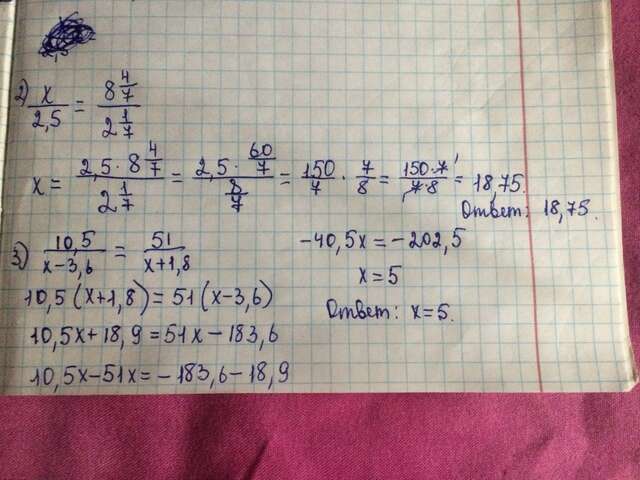 2) x/2,5 = 8 4/7 / 2 1/7
x = 2,5 · 8 4/7 / 2 1/7 = 2,5 · 60/7 / 8/7 = 150/7 · 7/8 = 150·7/7·8 = 18,75.
Ответ: 18,75.
3) 10,5/x-3,6 = 51/x+1,8
10,5(x+1,8)=51(x-3,6)
10,5x+18,9=51x-183,6
10,5x-51x=-183,6-18,9
-40,5x=-202,5
x=5
Ответ: x=5.